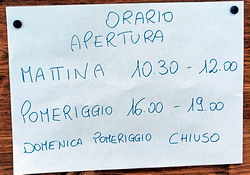 ORARIO
APERTURA
MATTINA 10.30 - 12.00
POMERIGGIO 16.00 - 19.00
DOMENICA POMERIGGIO CHIUSO